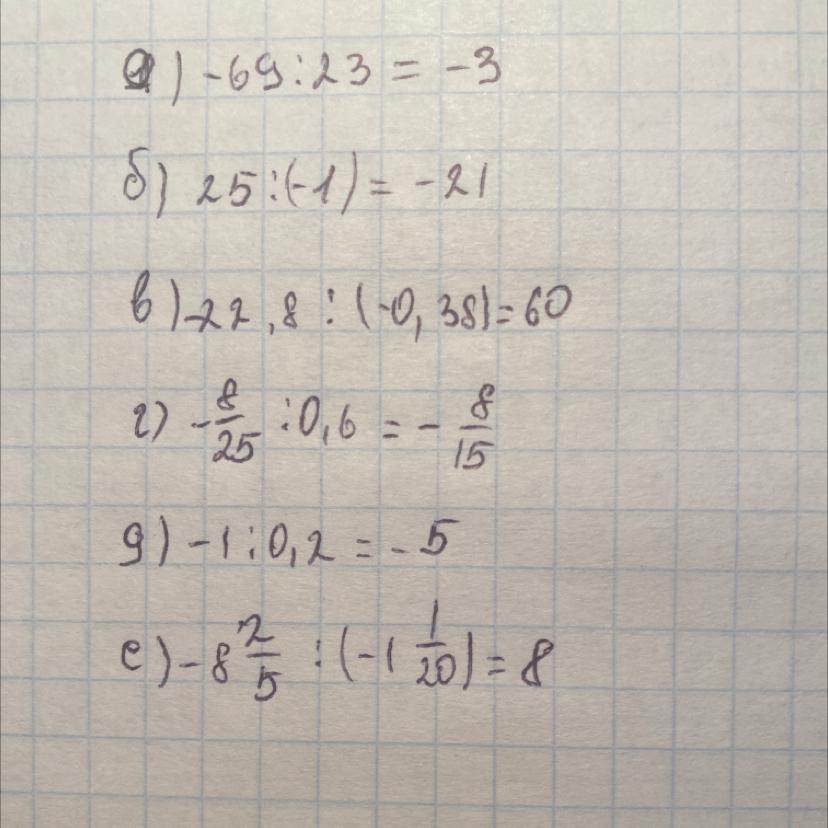 а) -69:23 = -3
б) 25:(-1) = -21
в) -22,8 : (-0,38) = 60
г) -8/25 : 0,6 = -8/15
д) -1:0,2 = -5
е) -8 2/5 : (-1 1/20) = 8